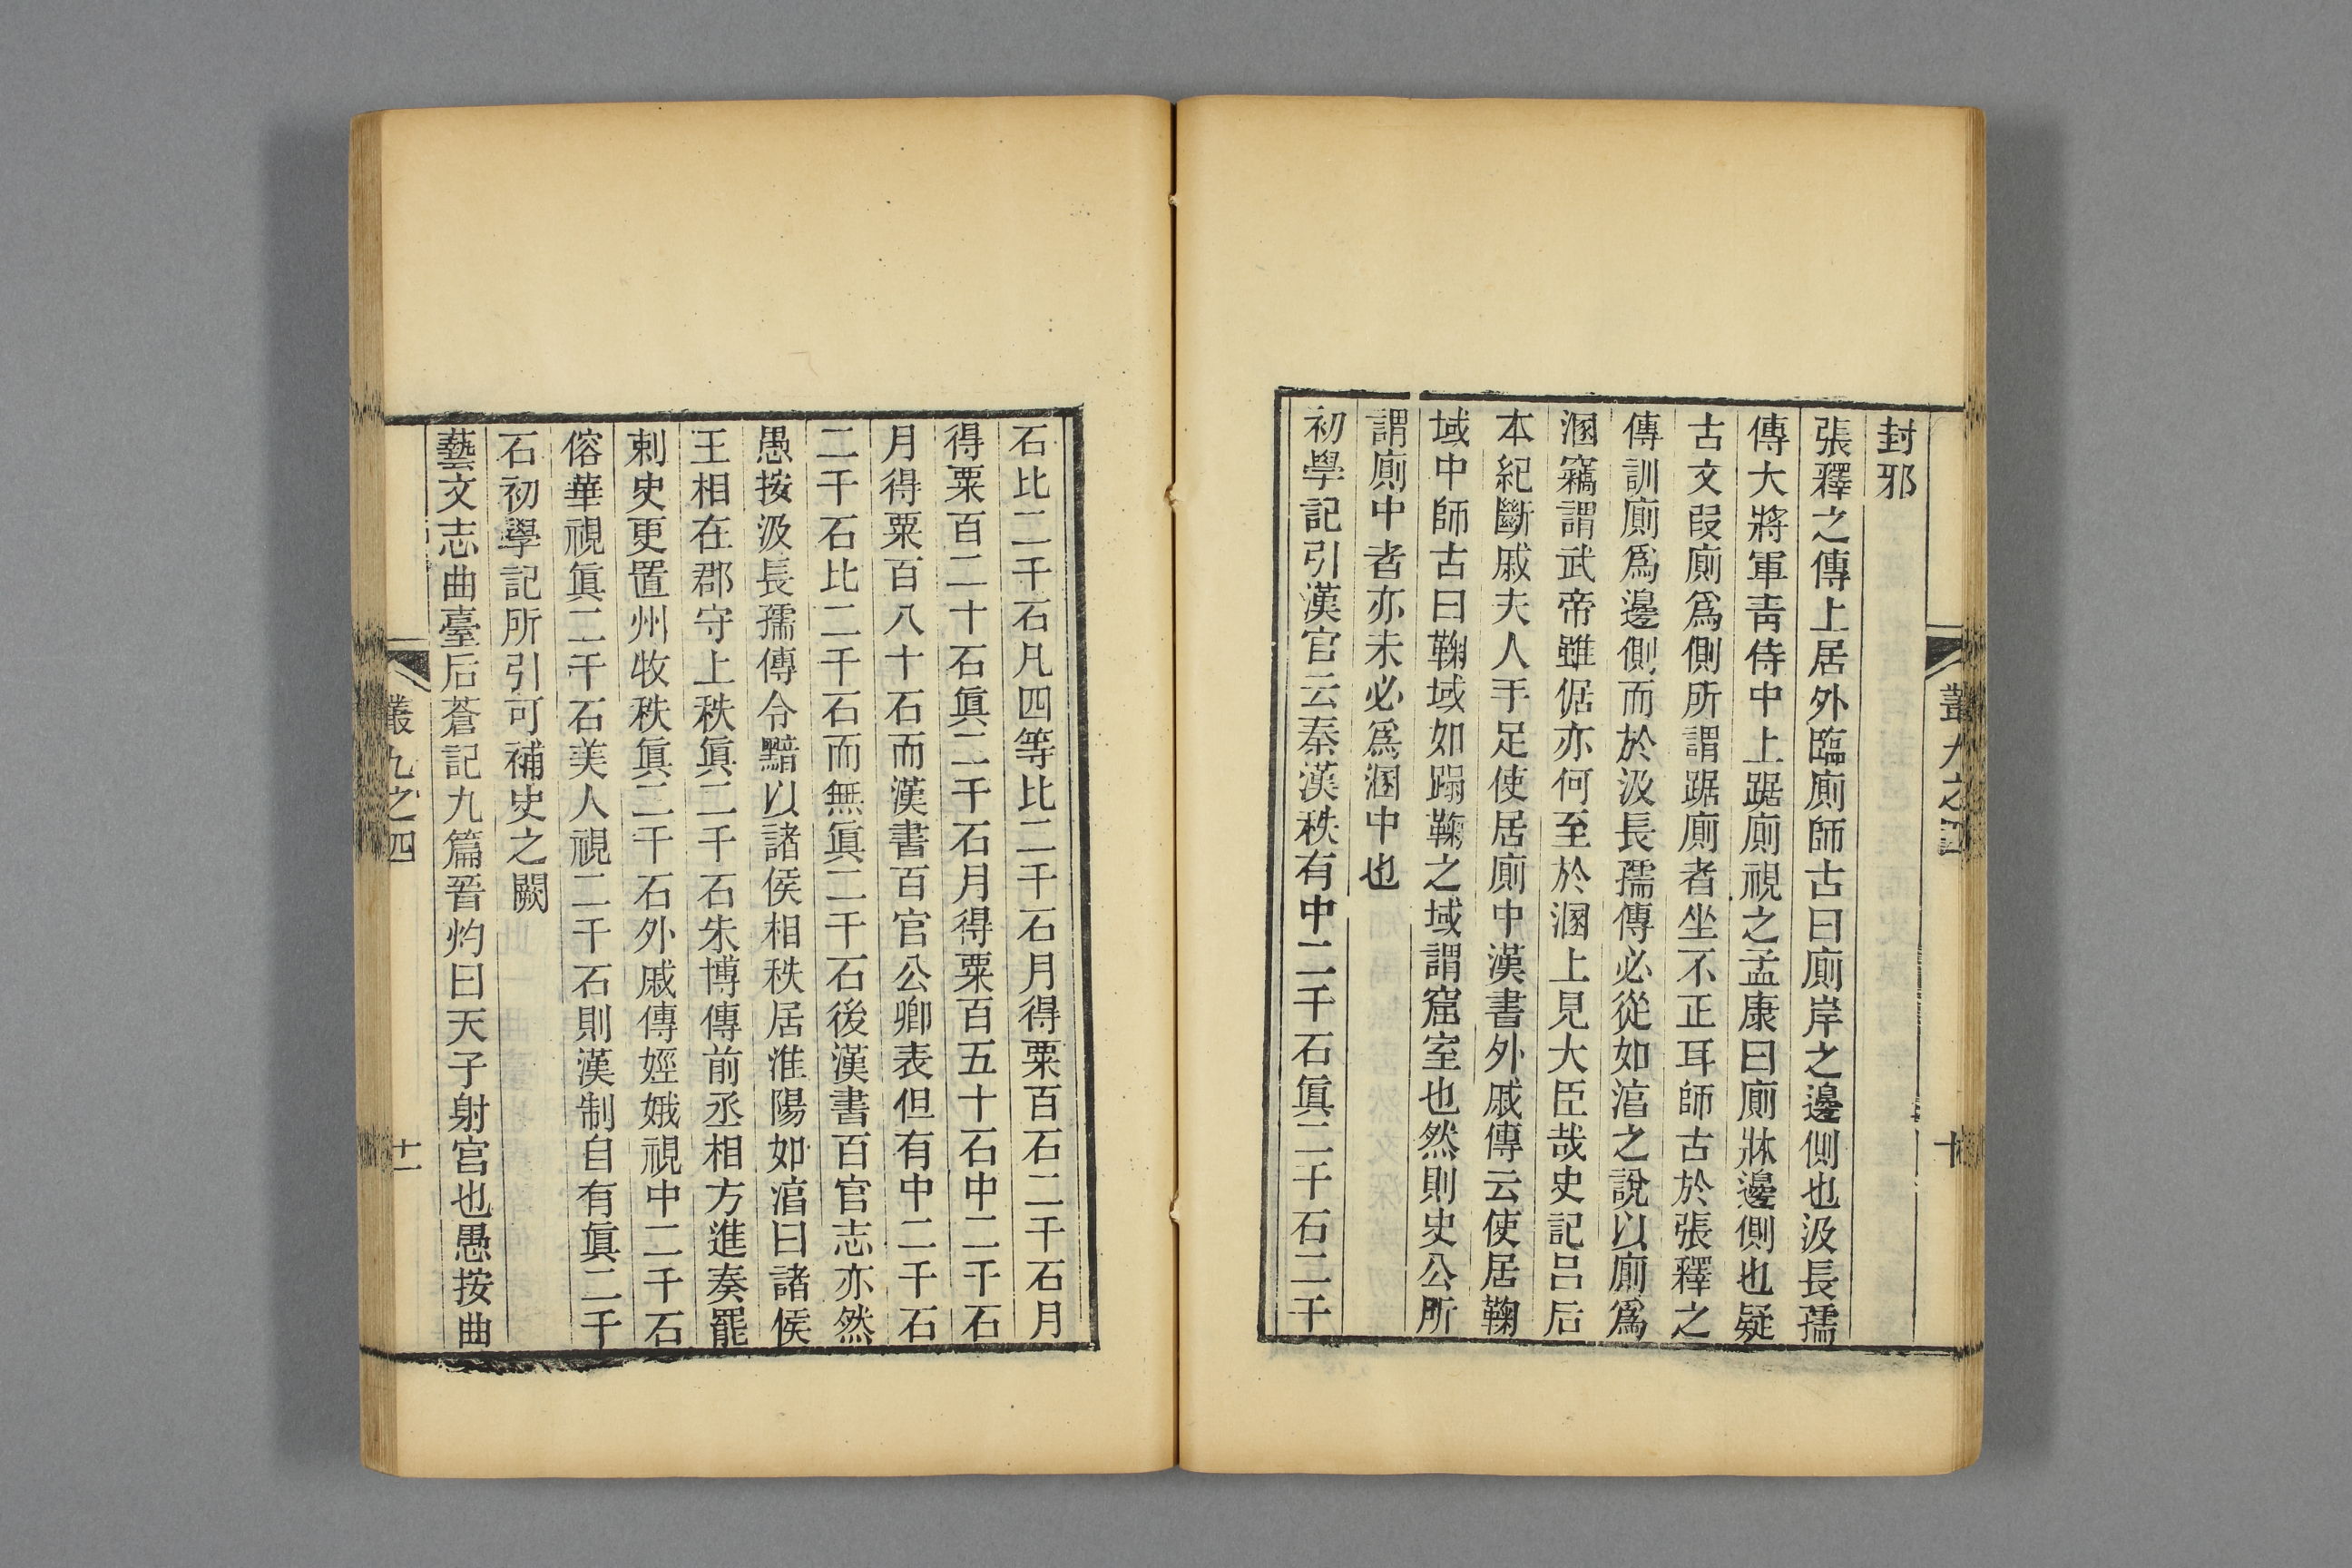 封邪
張釋之傳上居外臨廁師古曰廁岸之邊側也汲長孺
傳大將軍靑侍中上踞廁視之孟康曰廁牀邊側也疑
古文叚廁爲側所謂踞廁者坐不正耳師古於張釋之
傳訓廁爲邊側而於汲長孺傳必從如湻之說以廁爲
溷竊謂武帝雖倨亦何至於溷上見大臣哉史記呂后
本紀斷戚夫人手足使居廁中漢書外戚傳云使居鞠
域中師古曰鞠域如蹋鞠之域謂窟室也然則史公所
謂廁中者亦未必爲溷中也
初學記引漢官云秦漢秩有中二千石眞二千石二千
叢九之四
十
石比二千石凡四等比二千石月得粟百石二千石月
得粟百二十石眞二千石月得粟百五十石中二千石
月得粟百八十石而漢書百官公卿表但有中二千石
二千石比二千石而無眞二千石後漢書百官志亦然
愚按汲長孺傳令黯以諸侯相秩居淮陽如湻曰諸侯
王相在郡守上秩眞二千石朱博傳前丞相方進奏罷
刺史更置州牧秩眞二千石外戚傳娙娥視中二千石
傛華視眞二千石美人視二千石則漢制自有眞二千
石初學記所引可補史之闕
藝文志曲臺后蒼記九篇晉灼曰天子射宮也愚按曲
叢九之四
十一